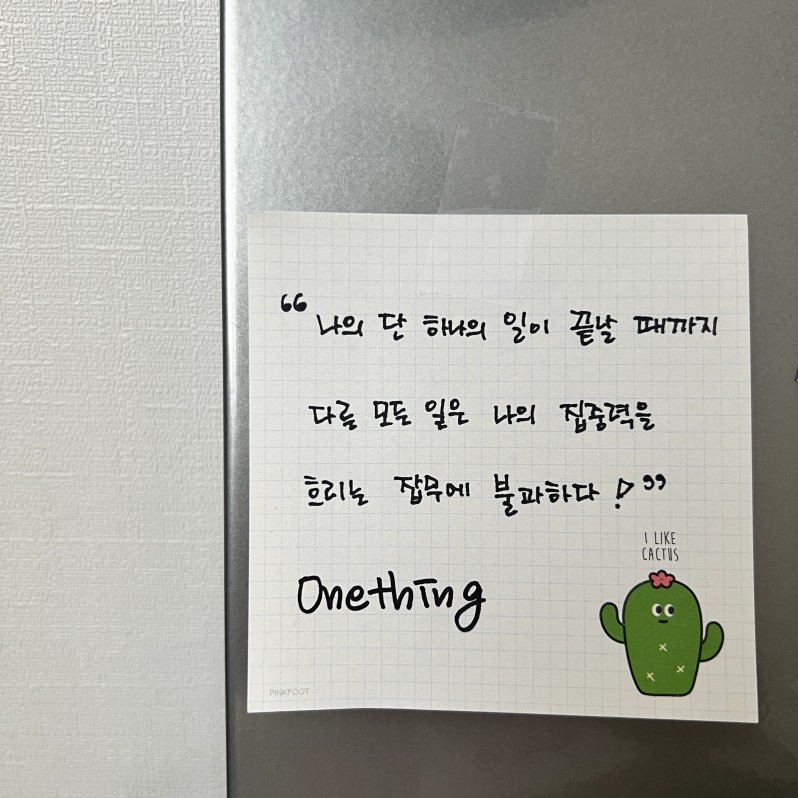 “ 나의 단 하나의 일이 끝날 때까지
다른 모든 일은 나의 집중력을
흐리는 잡무에 불과하다! ”
Onething
I LIKE
CACTUS
PINKFOOT